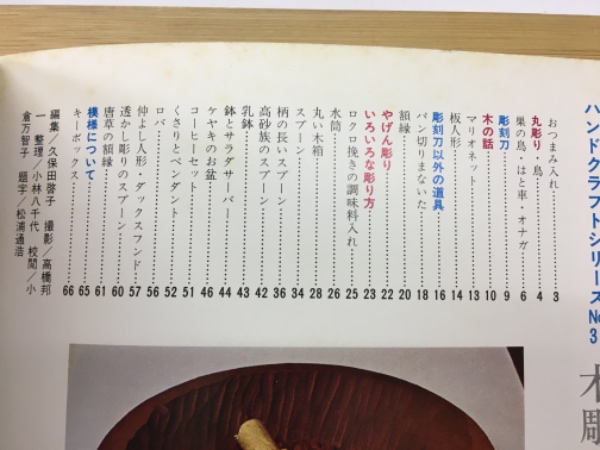 ハンドクラフトシリーズ No.3
木彫
おつまみ入れ……3
丸彫り・鳥……4
巣の鳥・はと車・オナガ……6
彫刻刀……9
木の話……10
マリオネット……13
板人形……14
彫刻刀以外の道具……16
パン切りまないた……18
額縁……20
やげん彫り……22
いろいろな彫り方……23
ロクロ挽きの調味料入れ……25
水筒……26
丸い木箱……28
スプーン……34
柄の長いスプーン……36
高砂族のスプーン……42
乳鉢……43
鉢とサラダサーバー……44
ケヤキのお盆……46
コーヒーセット……51
くさりとペンダント……52
ロバ……56
仲よし人形・ダックスフンド……57
透かし彫りのスプーン……60
唐草の額縁……61
模様について……65
キーボックス……66
編集/久保田啓子 撮影/高橋邦
一 整理/小林八千代 校閲/小
倉万智子 題字/松浦通浩